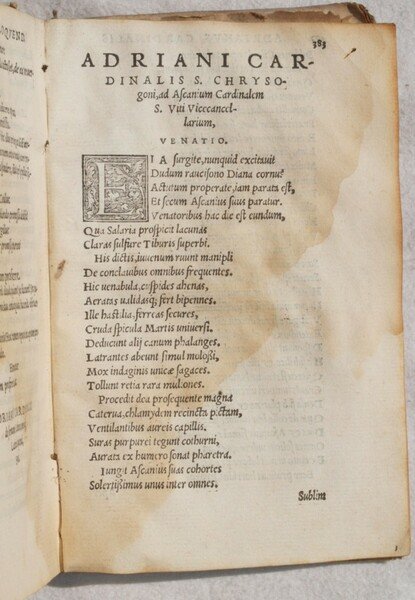 383
ADRIANI CAR-
DINALIS S. CHRYSO-
goni, ad Ascanium Cardinalem
S. Viti Vicecancel-
larium,
VENATIO.
EIA surgite, nunquid excitauit
Dudum raucisono Diana cornu?
Actutum properate, iam parata est,
Et secum Ascanius suus paratur.
Venatoribus hac die est eundum,
Qua Salaria prospicit lacunas
Claras sulfure Tiburis superbi.
His dictis, iuuenum ruunt manipli
De conclauibus omnibus frequentes.
Hic uenabula, cuspides ahenas,
Aeratas ualidasq; fert bipennes.
Ille hastilia, ferreas secures,
Cruda spicula Martis uniuersi.
Deducunt alij canum phalanges.
Latrantes abeunt simul molossi,
Mox indaginis unicæ sagaces.
Tollunt retia rara muliones.
Procedit dea prosequente magna
Caterua, chlamydem recincta pictam,
Ventilantibus aureis capillis.
Suras purpurei tegunt cothurni,
Aurata ex humero sonat pharetra.
Iungit Ascanius suas cohortes
Solertissimus unus inter omnes.
Sublim